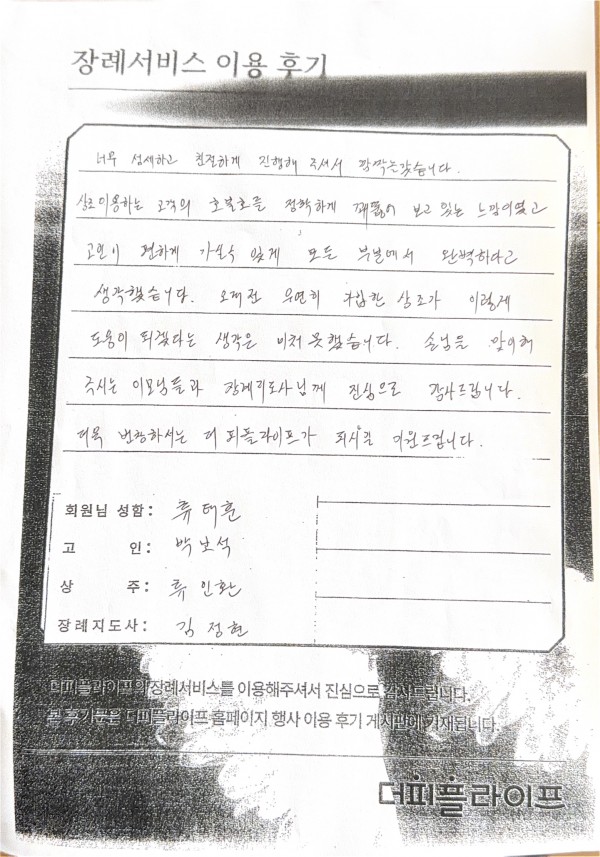 장례서비스 이용 후기
너무 섬세하고 친절하게 진행해 주셔서 깜짝놀랐습니다.
상조이용하는 고객의 호불호를 정확하게 꿰뚫어 보고 있는 느낌이였고
고인이 편하게 가실수 있게 모든 부분에서 완벽하다고
생각했습니다. 오래전 우연히 가입한 상조가 이렇게
도움이 되겠다는 생각은 미처 못했습니다. 손님을 맞이해
주시는 이모님들과 장례지도사님께 진심으로 감사드립니다.
더욱 번창하서는 더 피플라이프가 되시길 기원드립니다.
회원님 성함: 류태훈
고 인: 박보석
상 주: 류인환
장례지도사: 김정현
더피플라이프의 장례서비스를 이용해주셔서 진심으로 감사드립니다.
본 후기문은 더피플라이프 홈페이지 행사 이용 후기 게시판에 기재됩니다.
더피플라이프